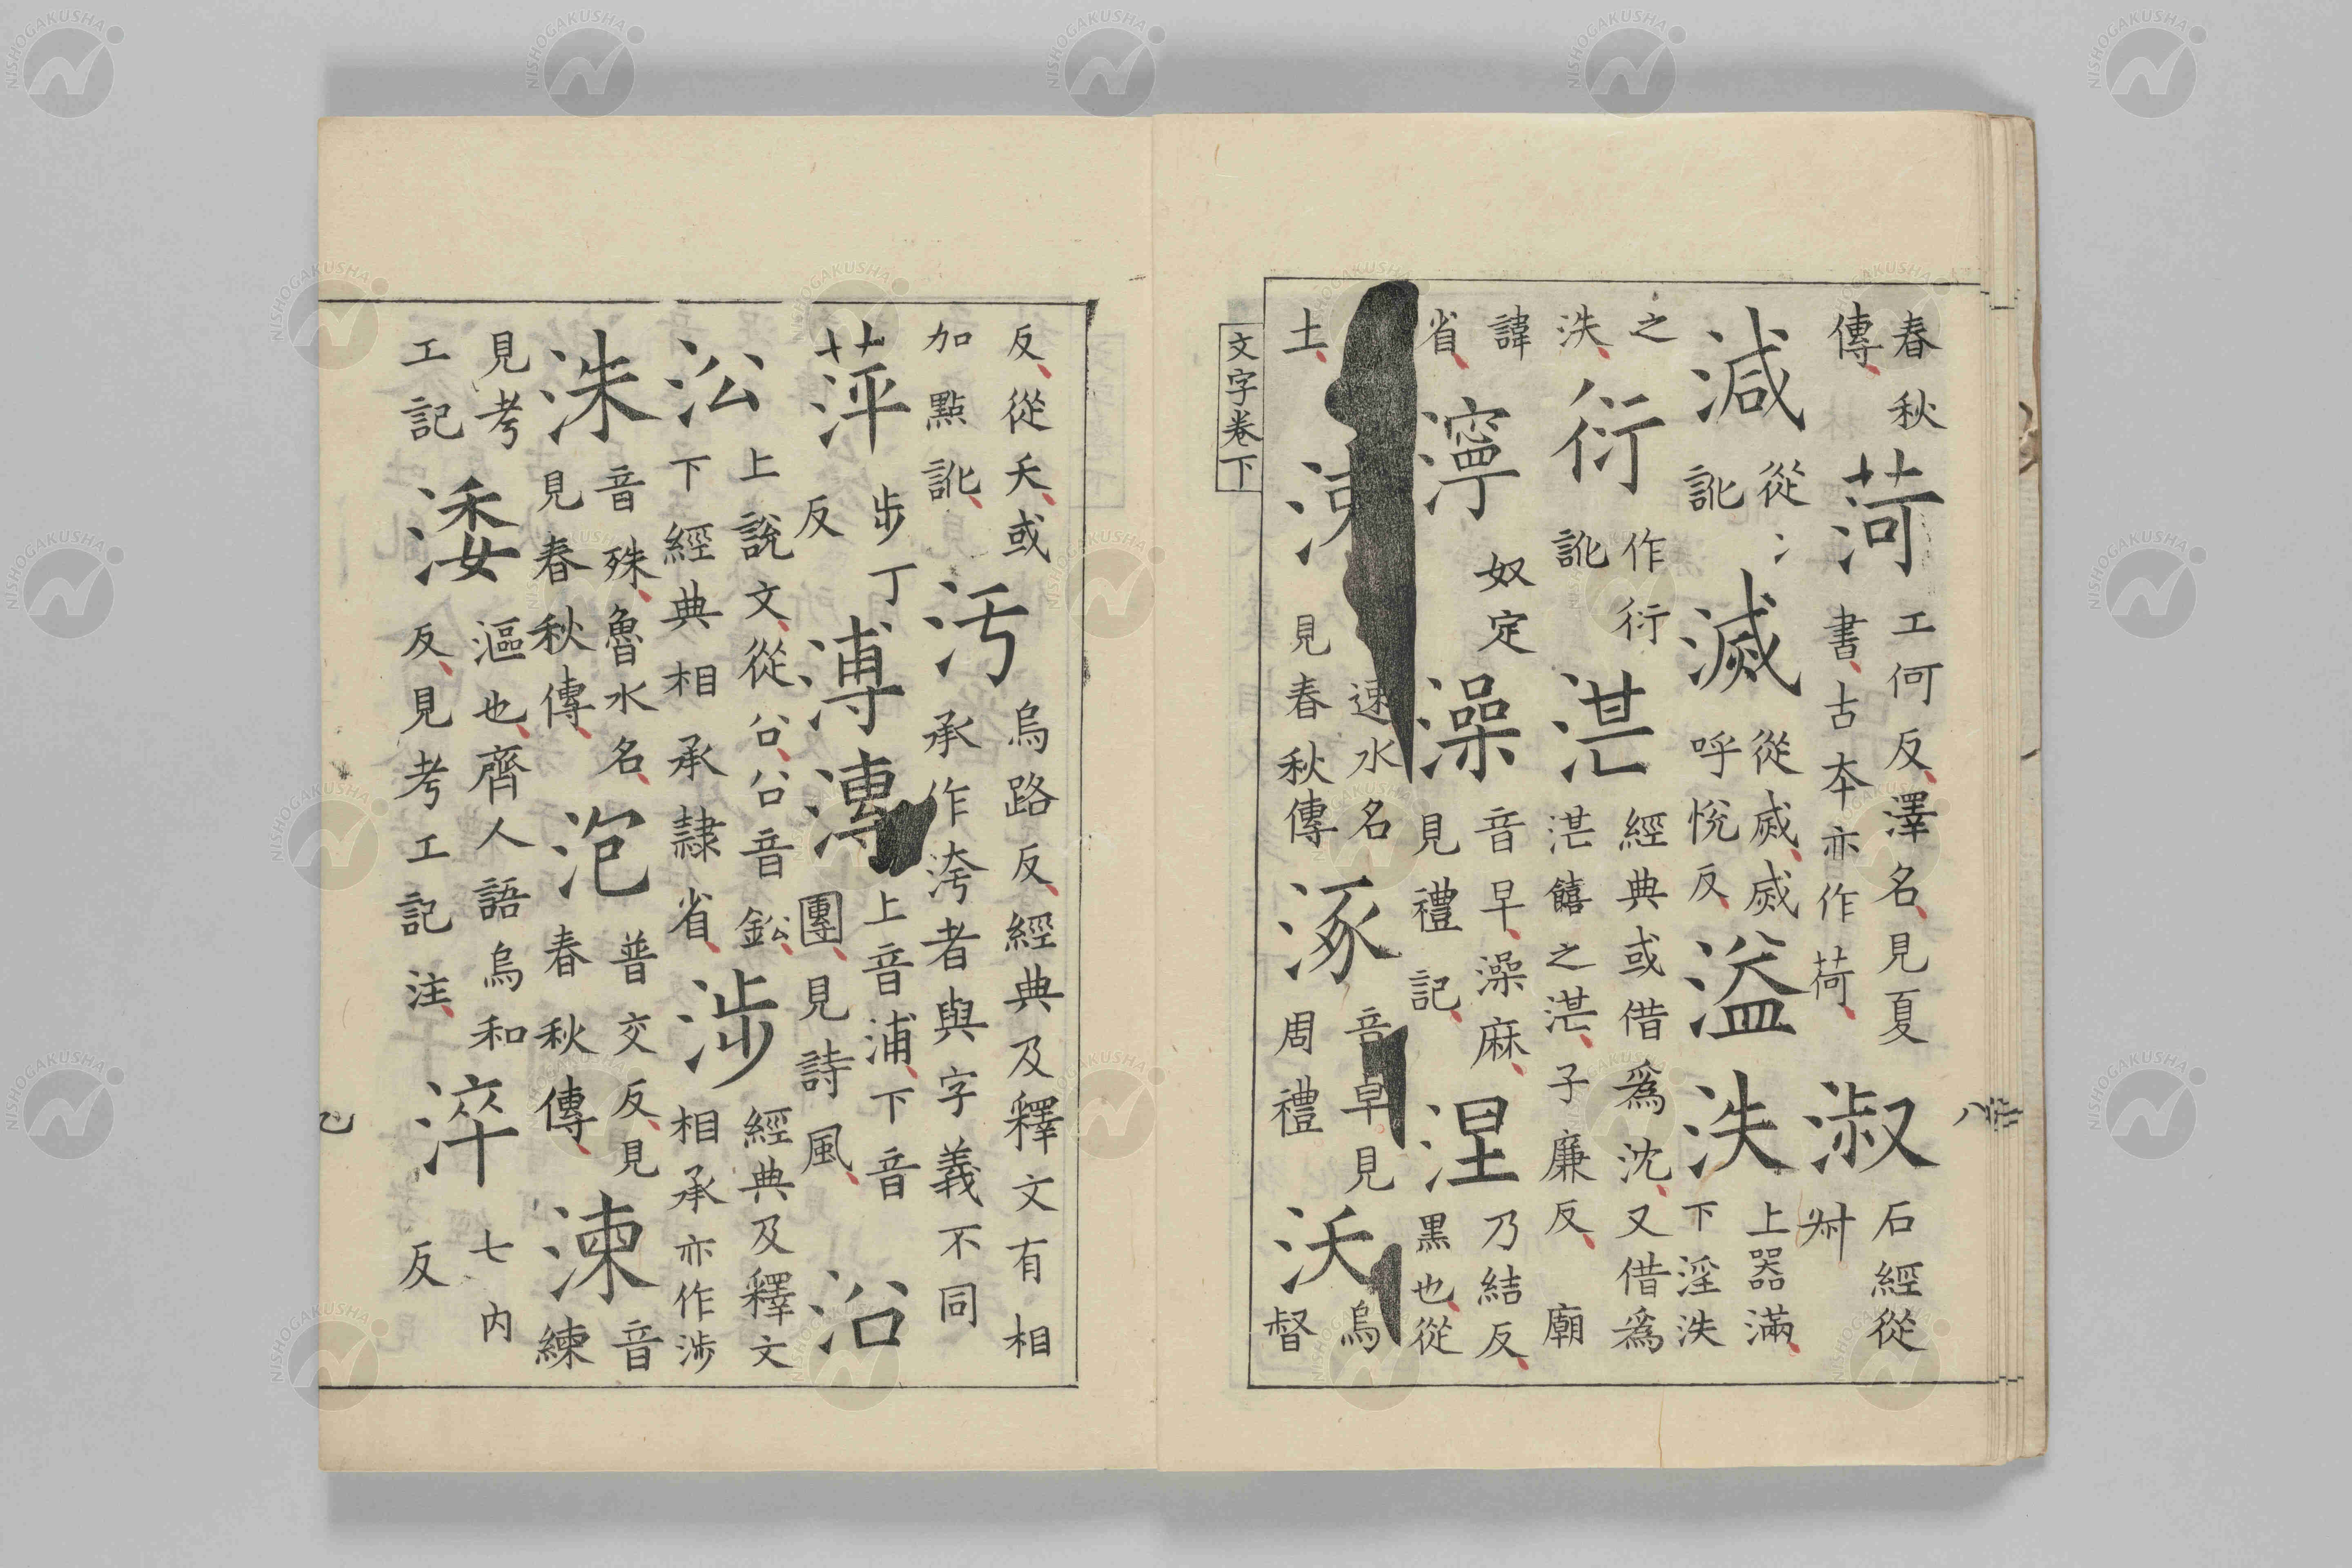 春秋
傳
菏
工何反澤名見夏
書古本亦作荷
淑
石經從
減
從冫
訛
滅
從烕烕
呼悅反
溢泆
上器滿
下淫泆
之
泆
衍
作衍
訛
湛
經典或借爲沈又借爲
湛饎之湛子廉反廟
諱
省
濘
奴定
澡
音早澡麻
見禮記
涅
乃結反
黒也從
土
涑
速水名
見春秋傳
涿
音卓見
周禮
沃
烏
督
文字卷下
反從夭或
加點訛
汙
烏路反經典及釋文有相
承作洿者與字義不同
萍
步丁
反
溥漙
上音浦下音
團見詩風
沿
㳂
上說文從㕣㕣音鈆
下經典相承隷省
涉
經典及釋文
相承亦作涉
洙
音殊魯水名
見春秋傳
泡
普交反見
春秋傳
湅
音
練
見考
工記
涹
漚也齊人語烏和
反見考工記注
淬
七内
反
NISHOGAKUSHA